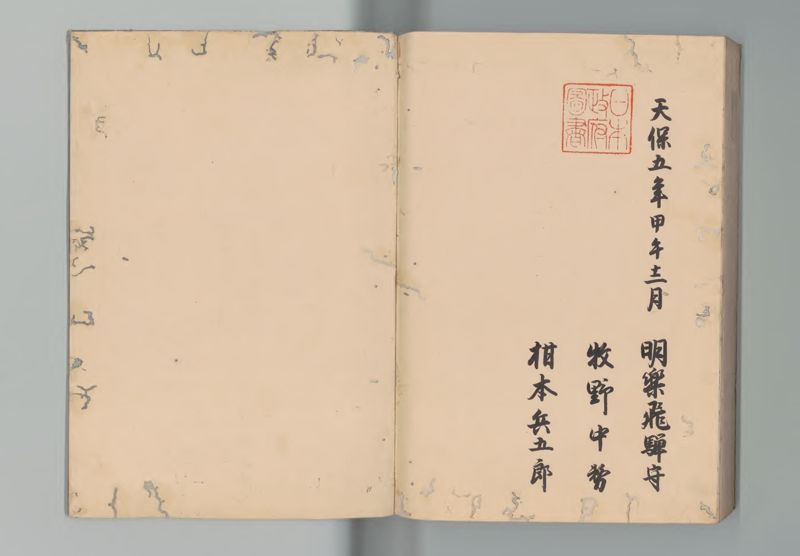 天保五年甲午十二月　明樂飛驒守
牧野中務
柑本兵五郎
日本
政府
圖書